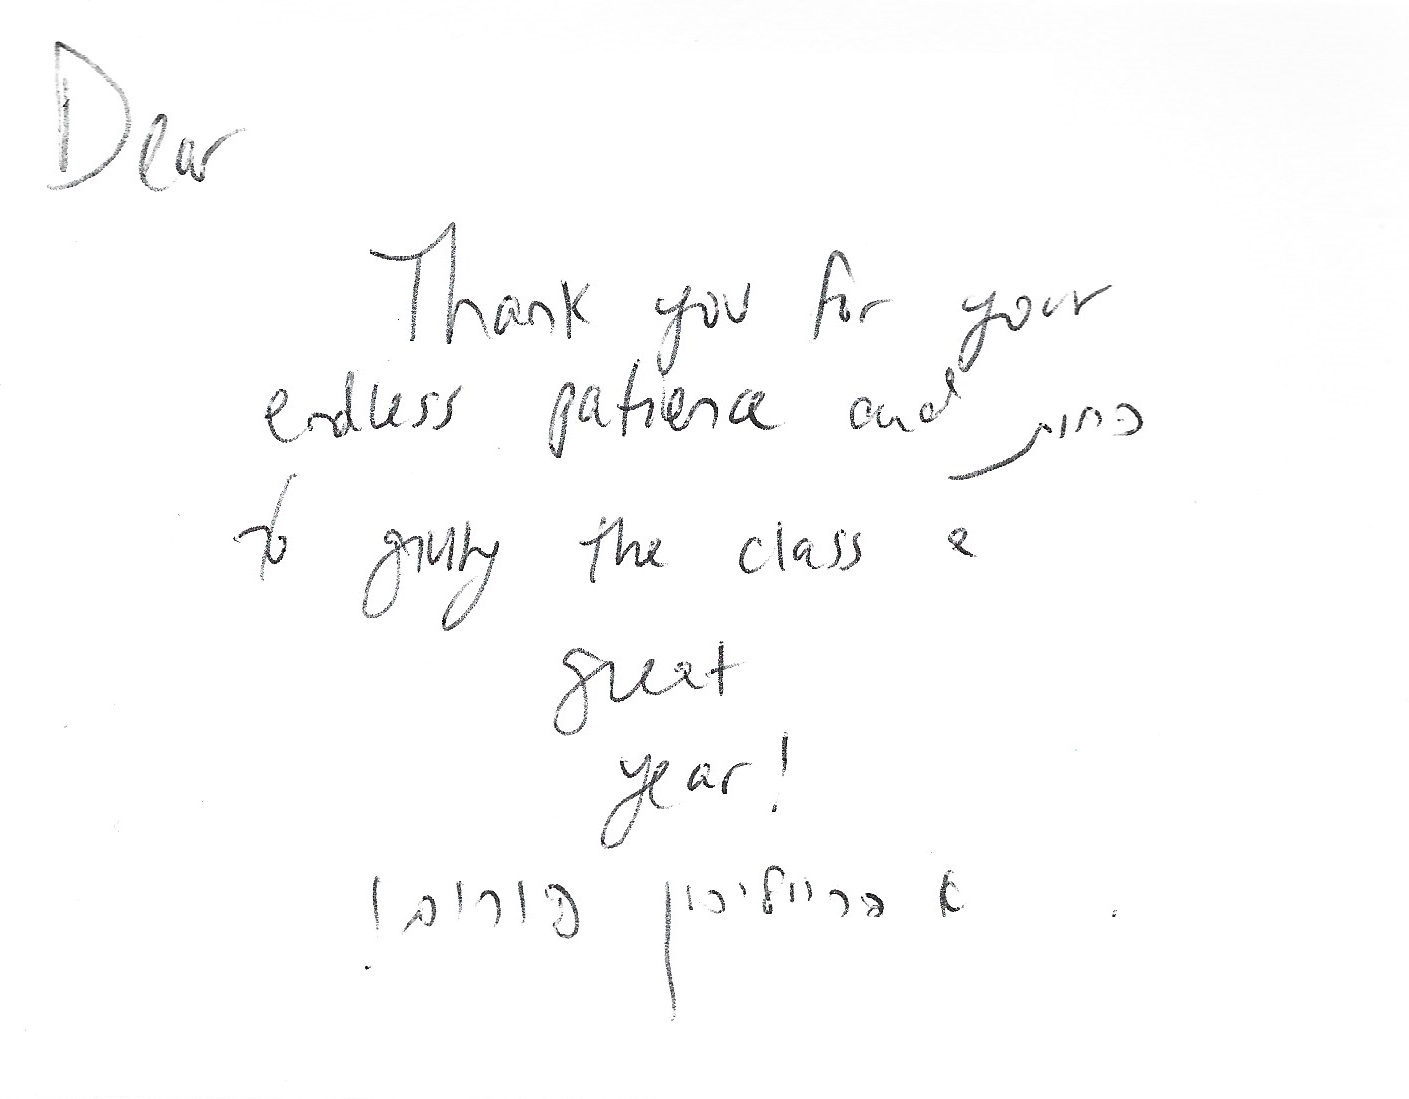 Dear
Thank you for your
endless patience and כחות
to giving the class a
great
year!
א פרייליכן פורים!